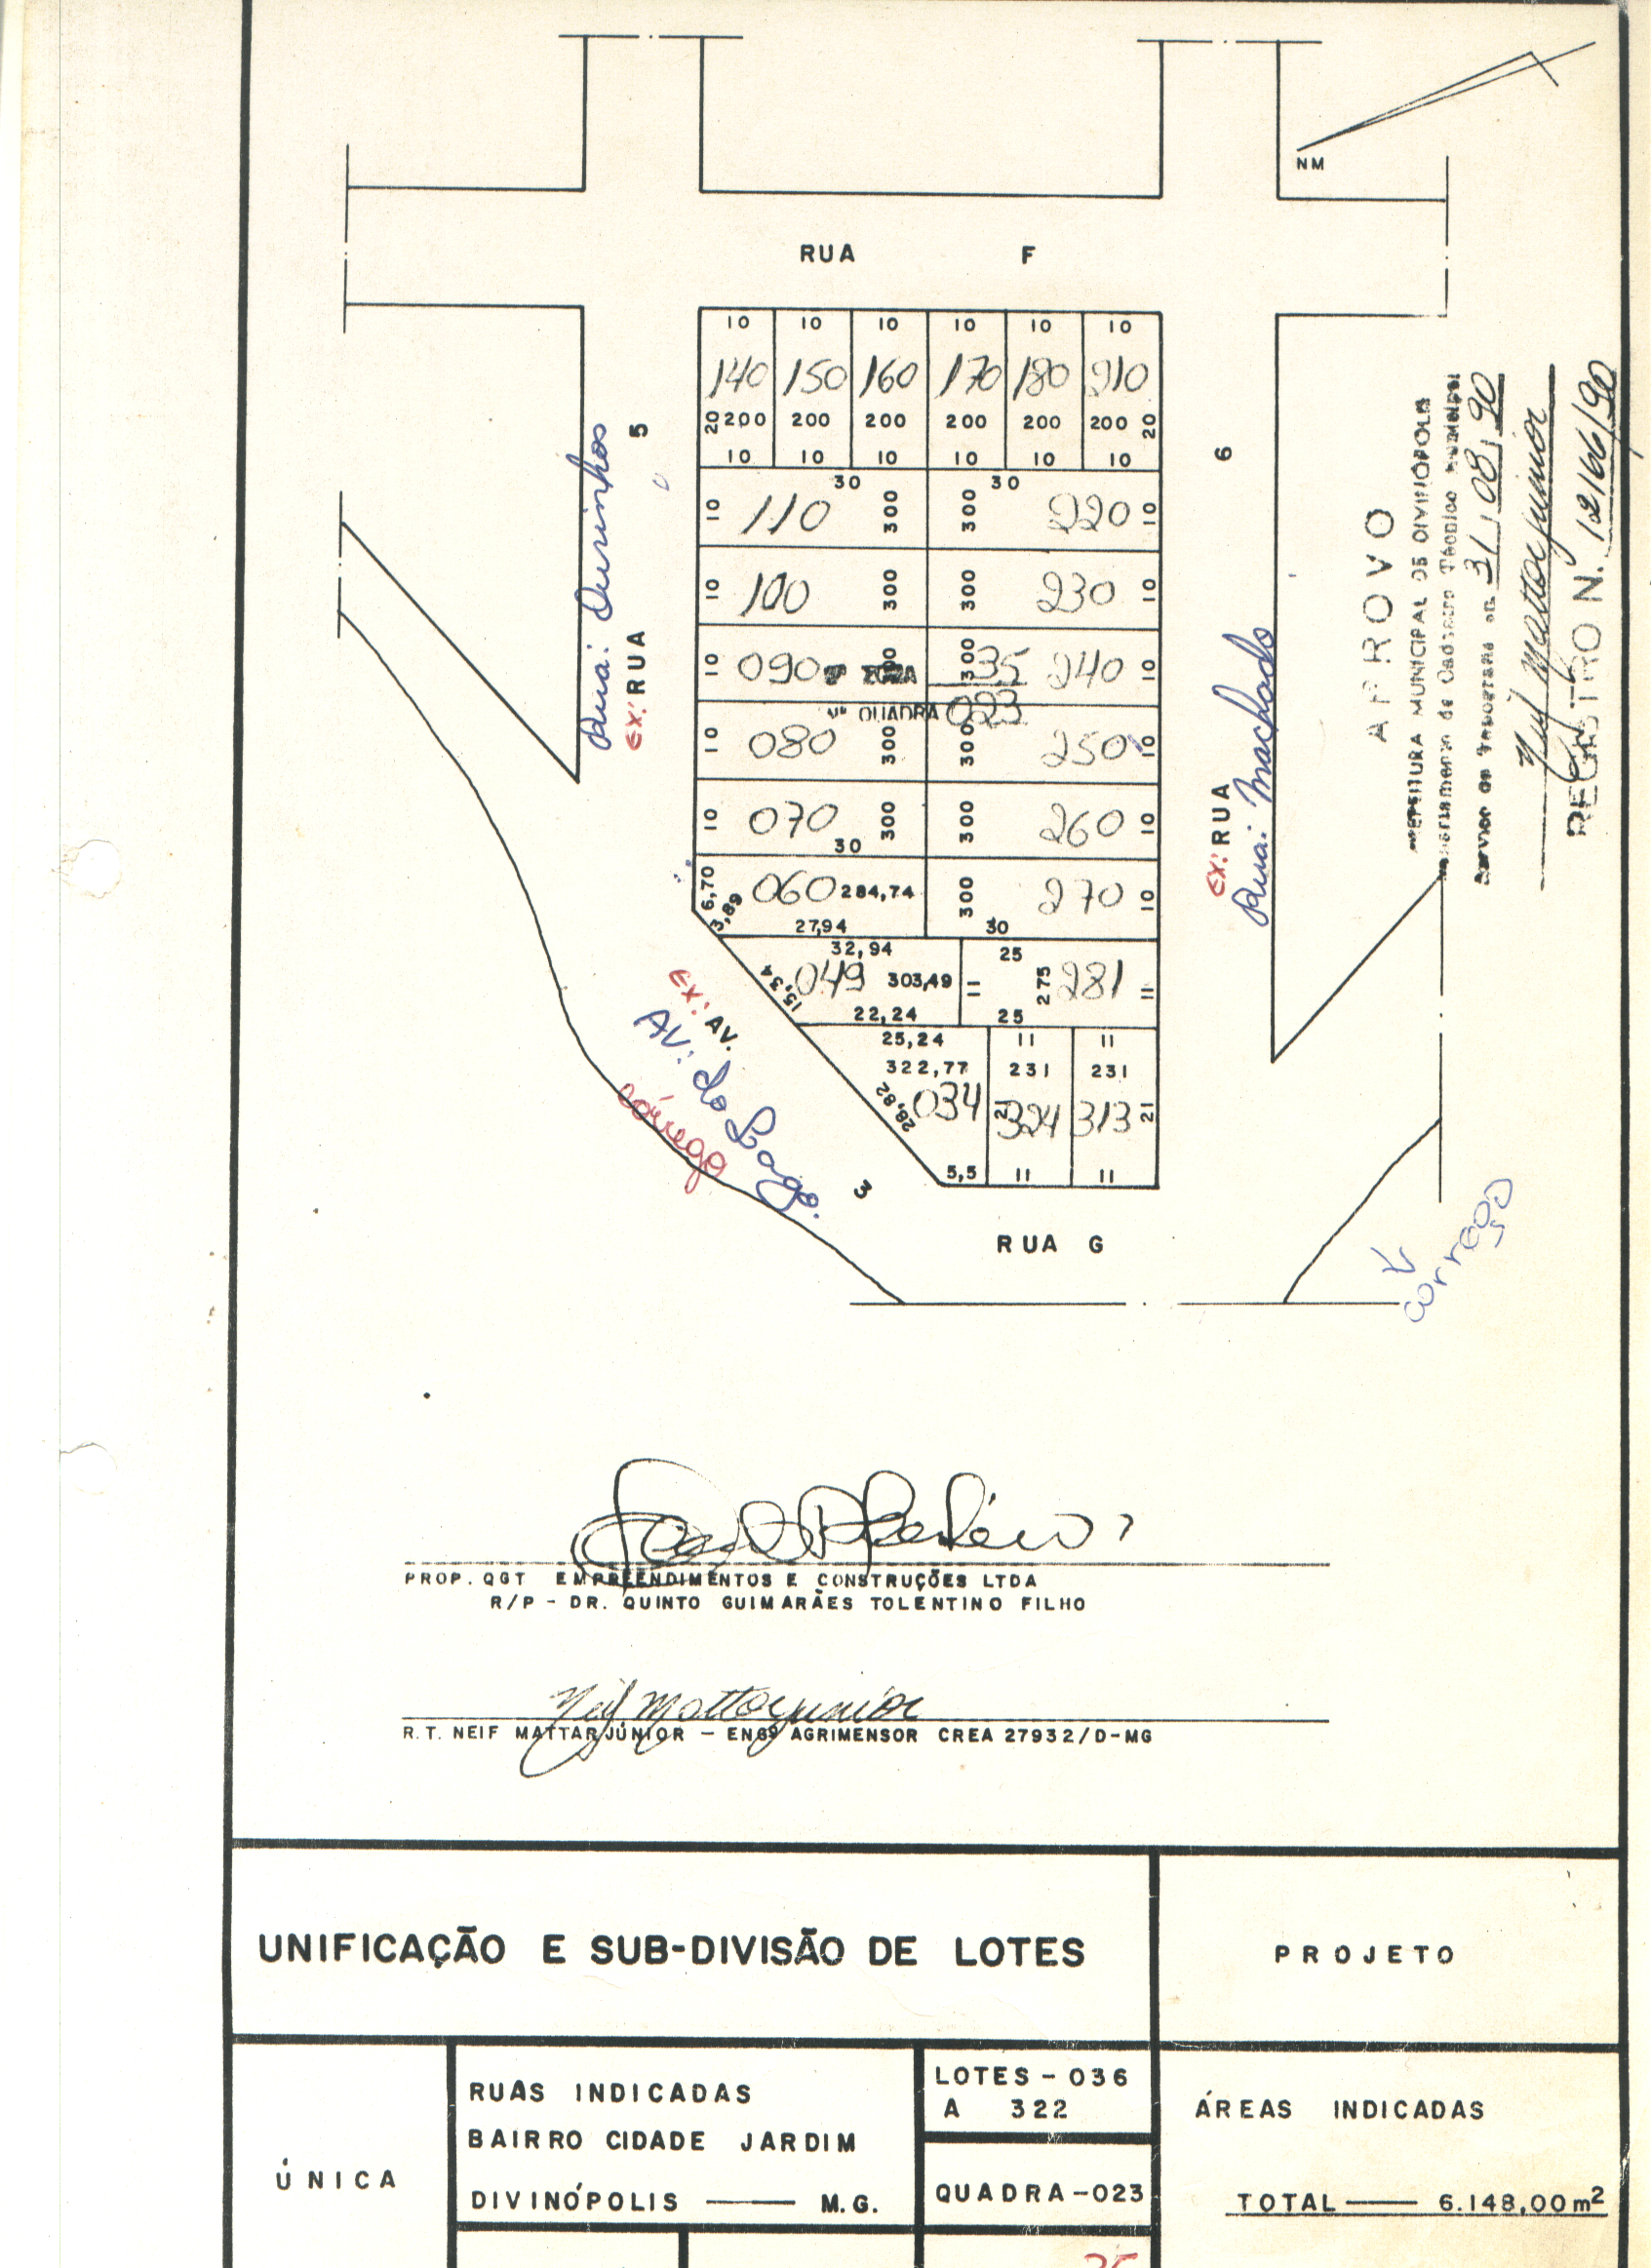 NM
RUA F
10 10 10 10 10 10
140 150 160 170 180 210
20 200 200 200 200 200 200 20
10 10 10 10 10 10
30 30
10 110 300 300 220 10
10 100 300 300 230 10
10 090 300 300 240 10
ZONA 35
Nº QUADRA 023
10 080 300 300 250 10
10 070 300 300 260 10
30
6,70 060 284,74 300 270 10
3,89 27,94 30
32,94 25
15,34 049 303,49 11 275 281 11
22,24 25
25,24 11 11
322,77 231 231
28,82 034 21 324 313 21
5,5 11 11
RUA G
Rua: Ourinhos
EX: RUA 5
EX: RUA 6
Rua: Machado
EX: AV. 3
AV: do Lago.
córrego
corrego
APROVO
PREFEITURA MUNICIPAL DE DIVINÓPOLIS
de Cadastro Técnico Municipal
Serviço de Topografia em 31/08/90
Neif Mattar Junior
REGISTRO N. 12166/90
PROP. QGT EMPREENDIMENTOS E CONSTRUÇÕES LTDA
R/P - DR. QUINTO GUIMARÃES TOLENTINO FILHO
Neif Mattar Junior
R.T. NEIF MATTAR JÚNIOR - ENGº AGRIMENSOR CREA 27932/D-MG
UNIFICAÇÃO E SUB-DIVISÃO DE LOTES
PROJETO
ÚNICA
RUAS INDICADAS
BAIRRO CIDADE JARDIM
DIVINÓPOLIS — M.G.
LOTES - 036
A 322
QUADRA - 023
ÁREAS INDICADAS
TOTAL — 6.148,00 m²
35